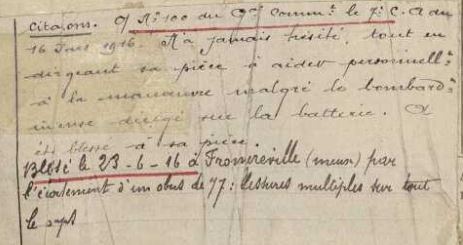 Citations. O/ N° 100 du G^al Comm^t le 7^e C. A du
16 Juns 1916. N'a jamais hésité, tout en
dirgeant sa pièce à aider personnell^t
à la manœuvre malgré le bombard^t
intense dirigé sur la batterie. A
été blessé à sa pièce.
Blessé le 23-6-16 à Fromeréville (meuse) par
l'éclatement d'un obus de 77: blessures multiples sur tout
le corps